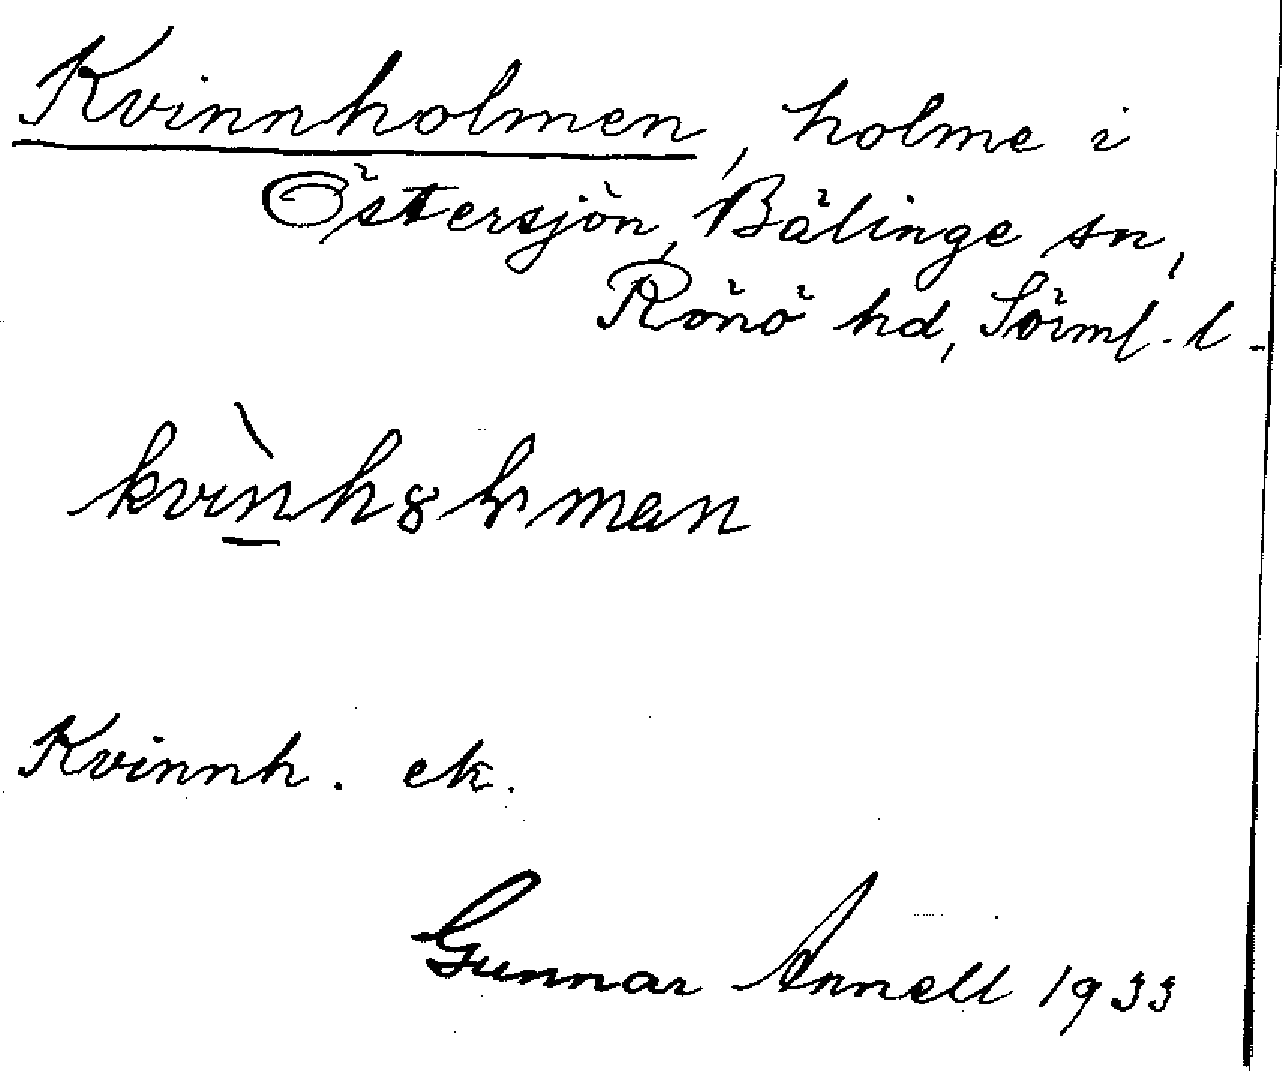 Kvinnholmen, holme i
Östersjön, Bälinge sn,
Rönö hd, Sörml. l.
kvình8lman
Kvinnh. ek.
Gunnar Annell 1933